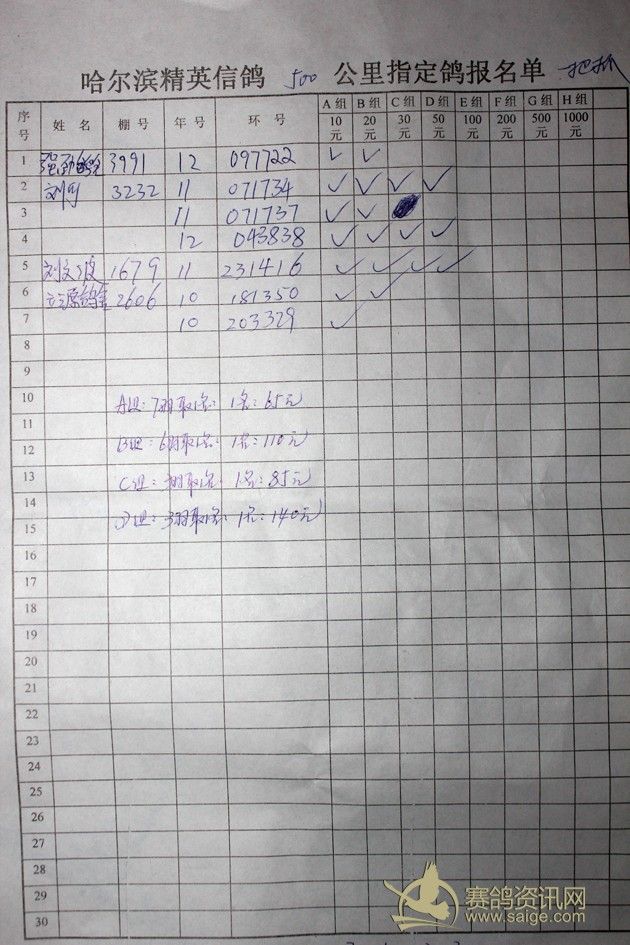 哈尔滨精英信鸽 500 公里指定鸽报名单
序号 姓 名 棚 号 年 号 环 号 A 组 10 元 B 组 20 元 C 组 30 元 D 组 50 元 E 组 100 元 F 组 200 元 G 组 500 元 H 组 1000 元
1 3991 12 097722 ✓ ✓
2 刘可 3232 11 071734 ✓ ✓ ✓ ✓
3 11 071737 ✓ ✓
4 12 043838 ✓ ✓ ✓ ✓
5 刘文波 1679 11 231416 ✓ ✓ ✓ ✓
6 2606 10 181350 ✓ ✓
7 10 203329 ✓
8
9
10
A组:7羽取1名:1名:65元
11
B组:6羽取1名:1名:110元
12
13
C组:3羽取1名:1名:85元
14
D组:3羽取1名:1名:140元
15
16
17
18
19
20
21
22
23
24
25
26
27
28
29
30
赛鸽资讯网
www.saige.com